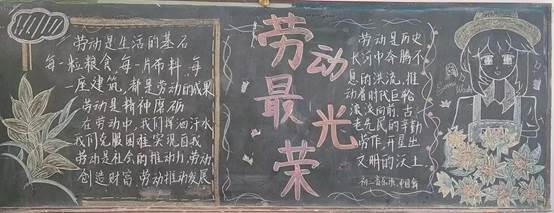 劳动是生活的基石
每一粒粮食、每一片布料、每
一座建筑,都是劳动的成果
劳动是精神原砺
在劳动中,我们挥洒汗水
我们克服困难实现自我
劳动是社会的推动力,劳动
创造财富,劳动推动发展
劳动
最光
荣
劳动是历史
长河中奔腾不
息的洪流,推
动着时代巨轮
滚滚向前,古
老先民的辛勤
劳作,开垦出
文明的沃土